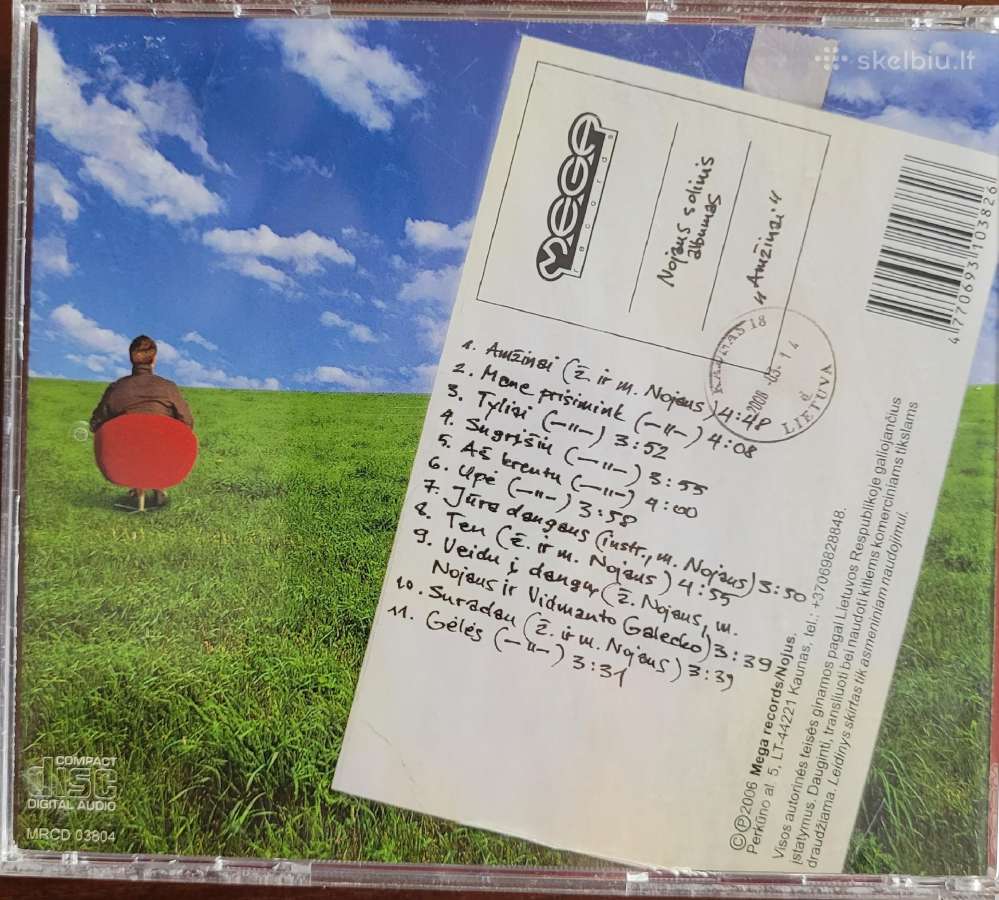 skelbiu.lt
MEGA
records
Nojaus solinis
albumas
„Amžinai“
KAUNAS 18
LIETUVA
d
1. Amžinai (ž. ir m. Nojaus) 4:48
2. Mane prisimink (–"–) 4:08
3. Tyliai (–"–) 3:52
4. Sugrįšiu (–"–) 3:55
5. Aš krentu (–"–) 4:00
6. Upė (–"–) 3:58
7. Jūra dangaus (instr., m. Nojaus) 3:50
8. Ten (ž. ir m. Nojaus) 4:55
9. Veidu į dangų (ž. Nojaus, m.
Nojaus ir Vidmanto Galecko) 3:39
10. Suradau (ž. ir m. Nojaus) 3:39
11. Gėlės (–"–) 3:31
4 770693 103826
©℗2006 Mega records/Nojus.
Perkūno al. 5, LT-44221 Kaunas, tel.: +37069828848.
Visos autorinės teisės ginamos pagal Lietuvos Respublikoje galiojančius
įstatymus. Dauginti, transliuoti bei naudoti kitiems komerciniams tikslams
draudžiama. Leidinys skirtas tik asmeniniam naudojimui.
COMPACT
disc
DIGITAL AUDIO
MRCD 03804